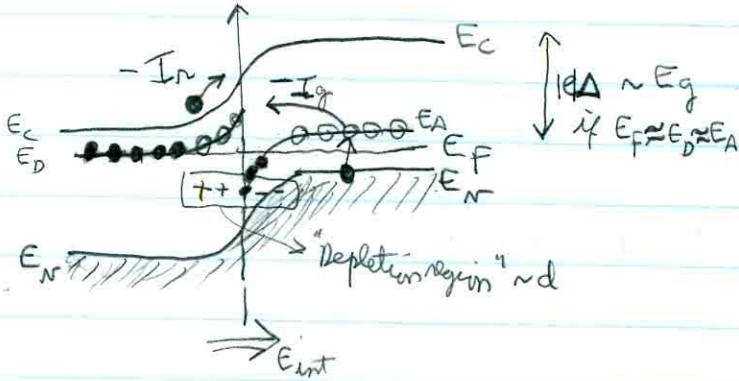 E_C
-I_r
-I_g
|e|Δ ~ E_g
if E_F≈E_D≈E_A
E_C
E_D
E_A
E_F
E_v
++ --
E_v
"Depletion region" ~ d
E_int